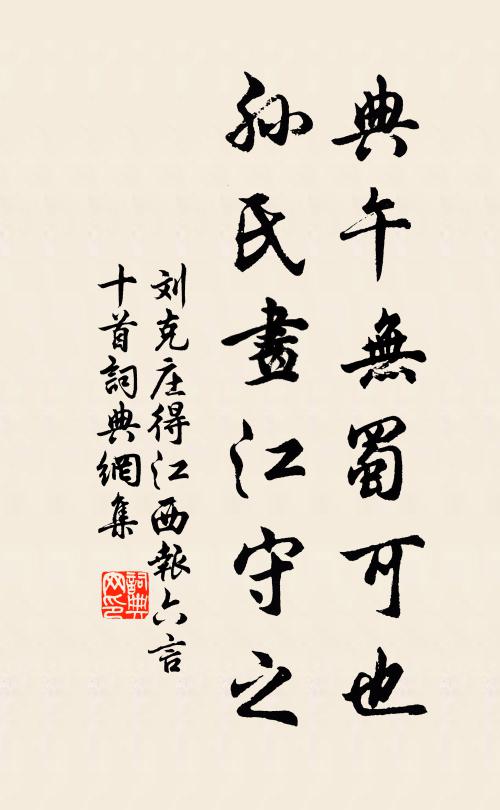 典午無蜀可也
孫氏畫江守之
刘克庄得江西報六言
十首詞典網集
詞典
网印